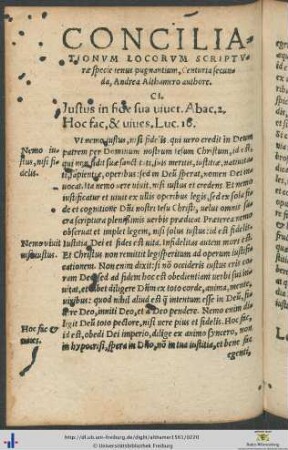 CONCILIA
TIONVM LOCORVM SCRIPTV
ræ specie tenus pugnantium, Centuria secun
da, Andrea Althamero authore.
CI.
Iustus in fide sua viuet. Abac, 2.
Hoc fac, & viues. Luc. 10.
Vt nemo iustus, nisi fidelis, qui uero credit in Deum
patrem per Dominum nostrum Iesum Christum, id est,
Nemo iu
stus, nisi fi
delis.
qui non fidit suis meritis, iustitiæ,
sapientiæ, operibus: sed in Deū sperat, nomen Dei in
uocat. Ita nemo uere uiuit, nisi iustus et credens. Et nemo
iustificatur et uiuit ex ullis operibus legis, sed ex sola fi
de et cognitione Dñi nostri Iesu Christi, uelut omnis sa
cra scriptura plenissimis uerbis prædicat. Præterea nemo
obseruat et implet legem, nisi solus iustus: id est fidelis.
Nemo viuit
nisi iustus.
Iustitia Dei et fides est uita. Infidelitas autem mors est.
Et Christus non remittit legisperitum ad operum iustifi
cationem. Non enim dixit: si nō occideris iustus eris co
ram Deo, sed ad fidem hoc est obedientiam uerbi sui inui
tat, et iubet diligere Dñm ex toto corde, anima, mente,
uiribus: quod nihil aliud est q̃ intentum esse in Deū, fi
dere Deo, inniti Deo, et à Deo pendere. Nemo enim di
ligit Deū toto pectore, nisi uere pius et fidelis. Hoc fac,
Hoc fac &
uiues.
id est, obedi Dei imperio, dilige ex animo syncero, non
in hypocrisi, spera in Dño, nō in tua iustitia, et bene fac
egenti,
http://dl.ub.uni-freiburg.de/diglit/althamer1561/0270
© Universitätsbibliothek Freiburg